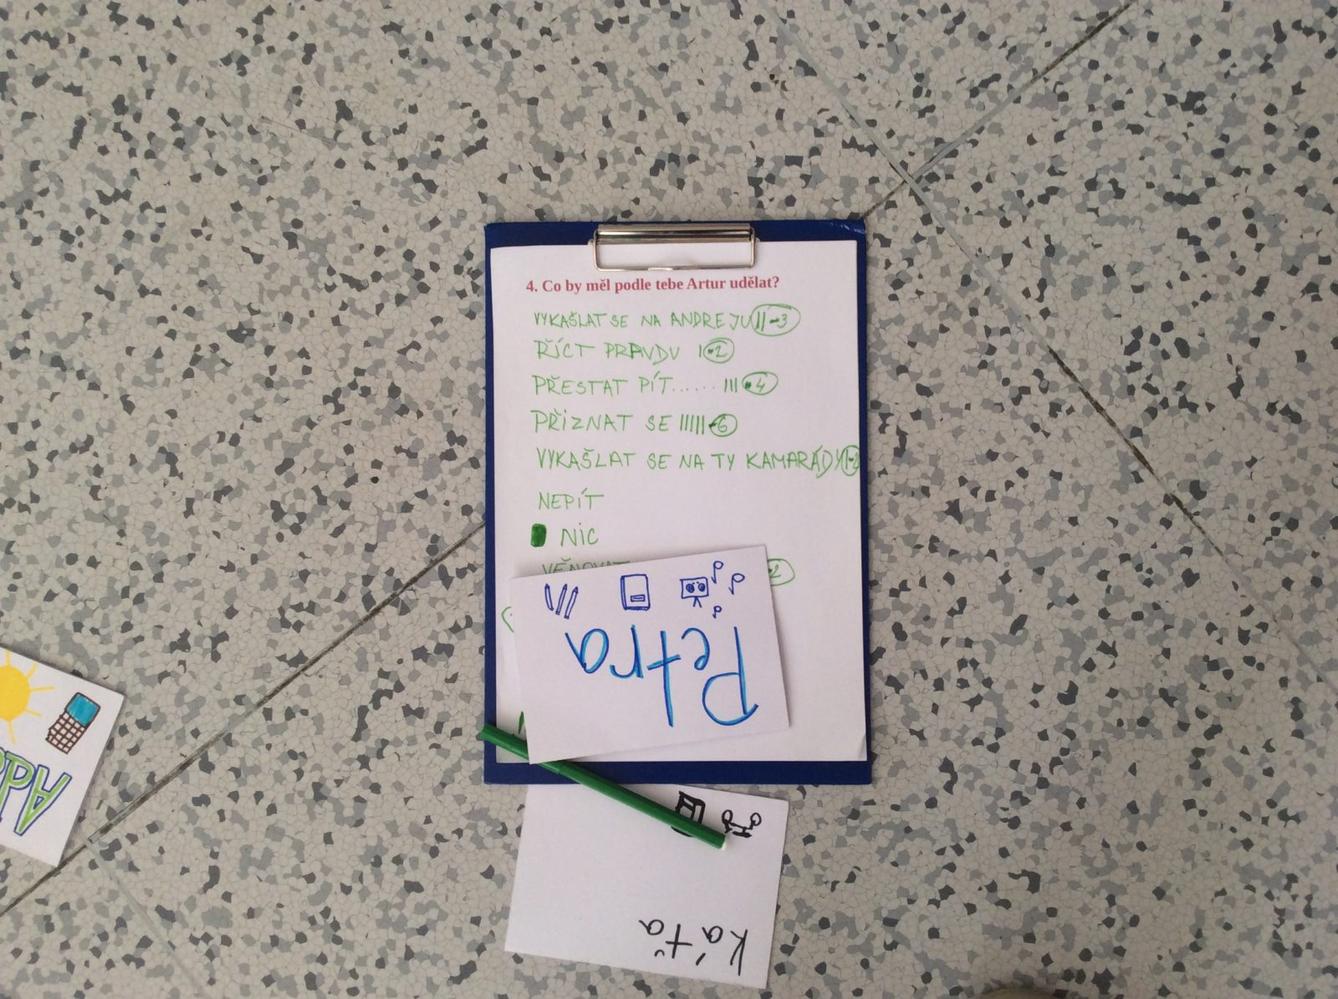 4. Co by měl podle tebe Artur udělat?
VYKAŠLAT SE NA ANDREJU II-3
ŘÍCT PRAVDU I 2
PŘESTAT PÍT...... III 4
PŘIZNAT SE IIIII-6
VYKAŠLAT SE NA TY KAMARÁDY
NEPÍT
NIC
2
Petra
Káťa